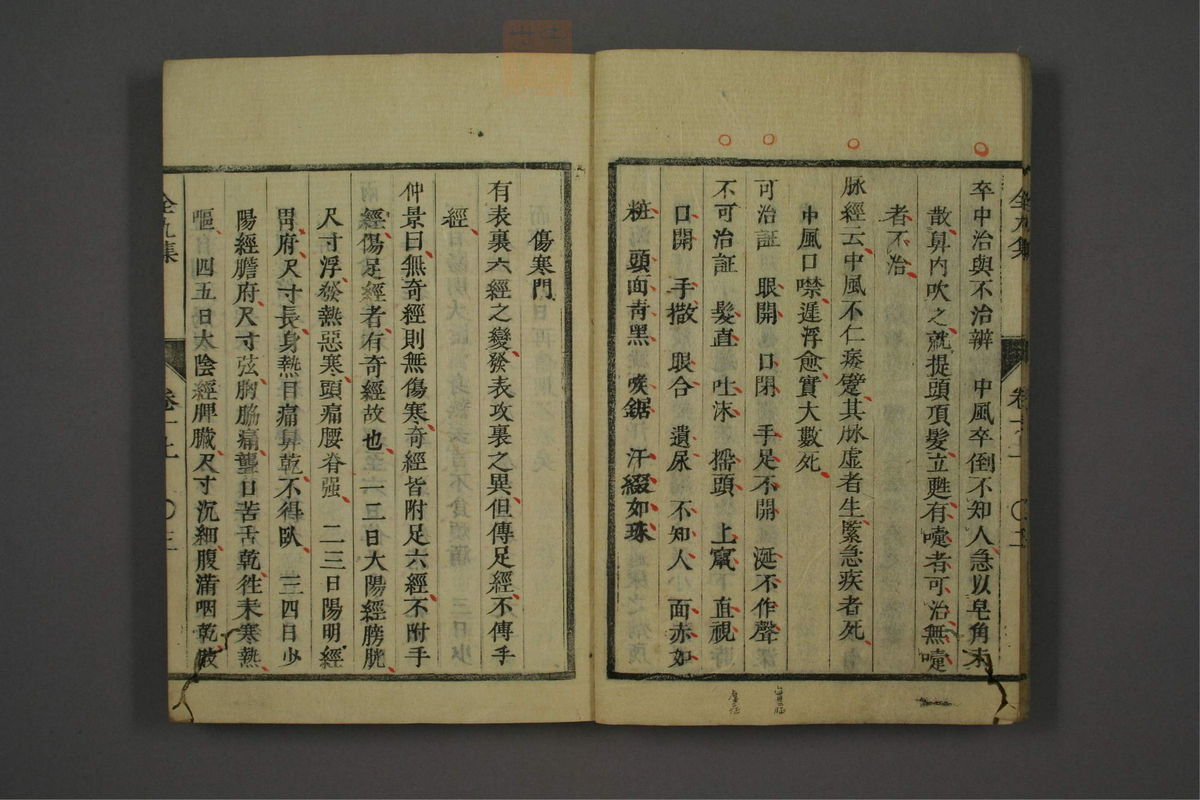 卒中治與不治辨　中風卒倒不知人急以皂角末
散鼻内吹之就提頭頂髮立甦有嚏者可治無嚏
者不治
脉經云中風不仁痿躄其脉虚者生緊急疾者死
中風口噤遲浮愈實大數死
可治証　眼開　口閉　手足不開　涎不作聲
不可治証　髮直　吐沫　揺頭　上竄　直視
口開　手撒　眼合　遺尿　不知人　面赤如
粧　頭面青黑　痰鋸　汗綴如珠
傷寒門
有表裏六經之變發表攻裏之異但傳足經不傳手
經
仲景曰無奇經則無傷寒奇經皆附足六經不附手
經傷足經者有奇經故也　一二日大陽經膀胱
尺寸浮發熱惡寒頭痛腰脊强　二三日陽明經
胃府尺寸長身熱目痛鼻乾不得臥　三四日少
陽經膽府尺寸弦胸脇痛聾口苦舌乾徃来寒熱
嘔　四五日太陰經脾臟尺寸沉細腹滿咽乾
全九集
卷一上